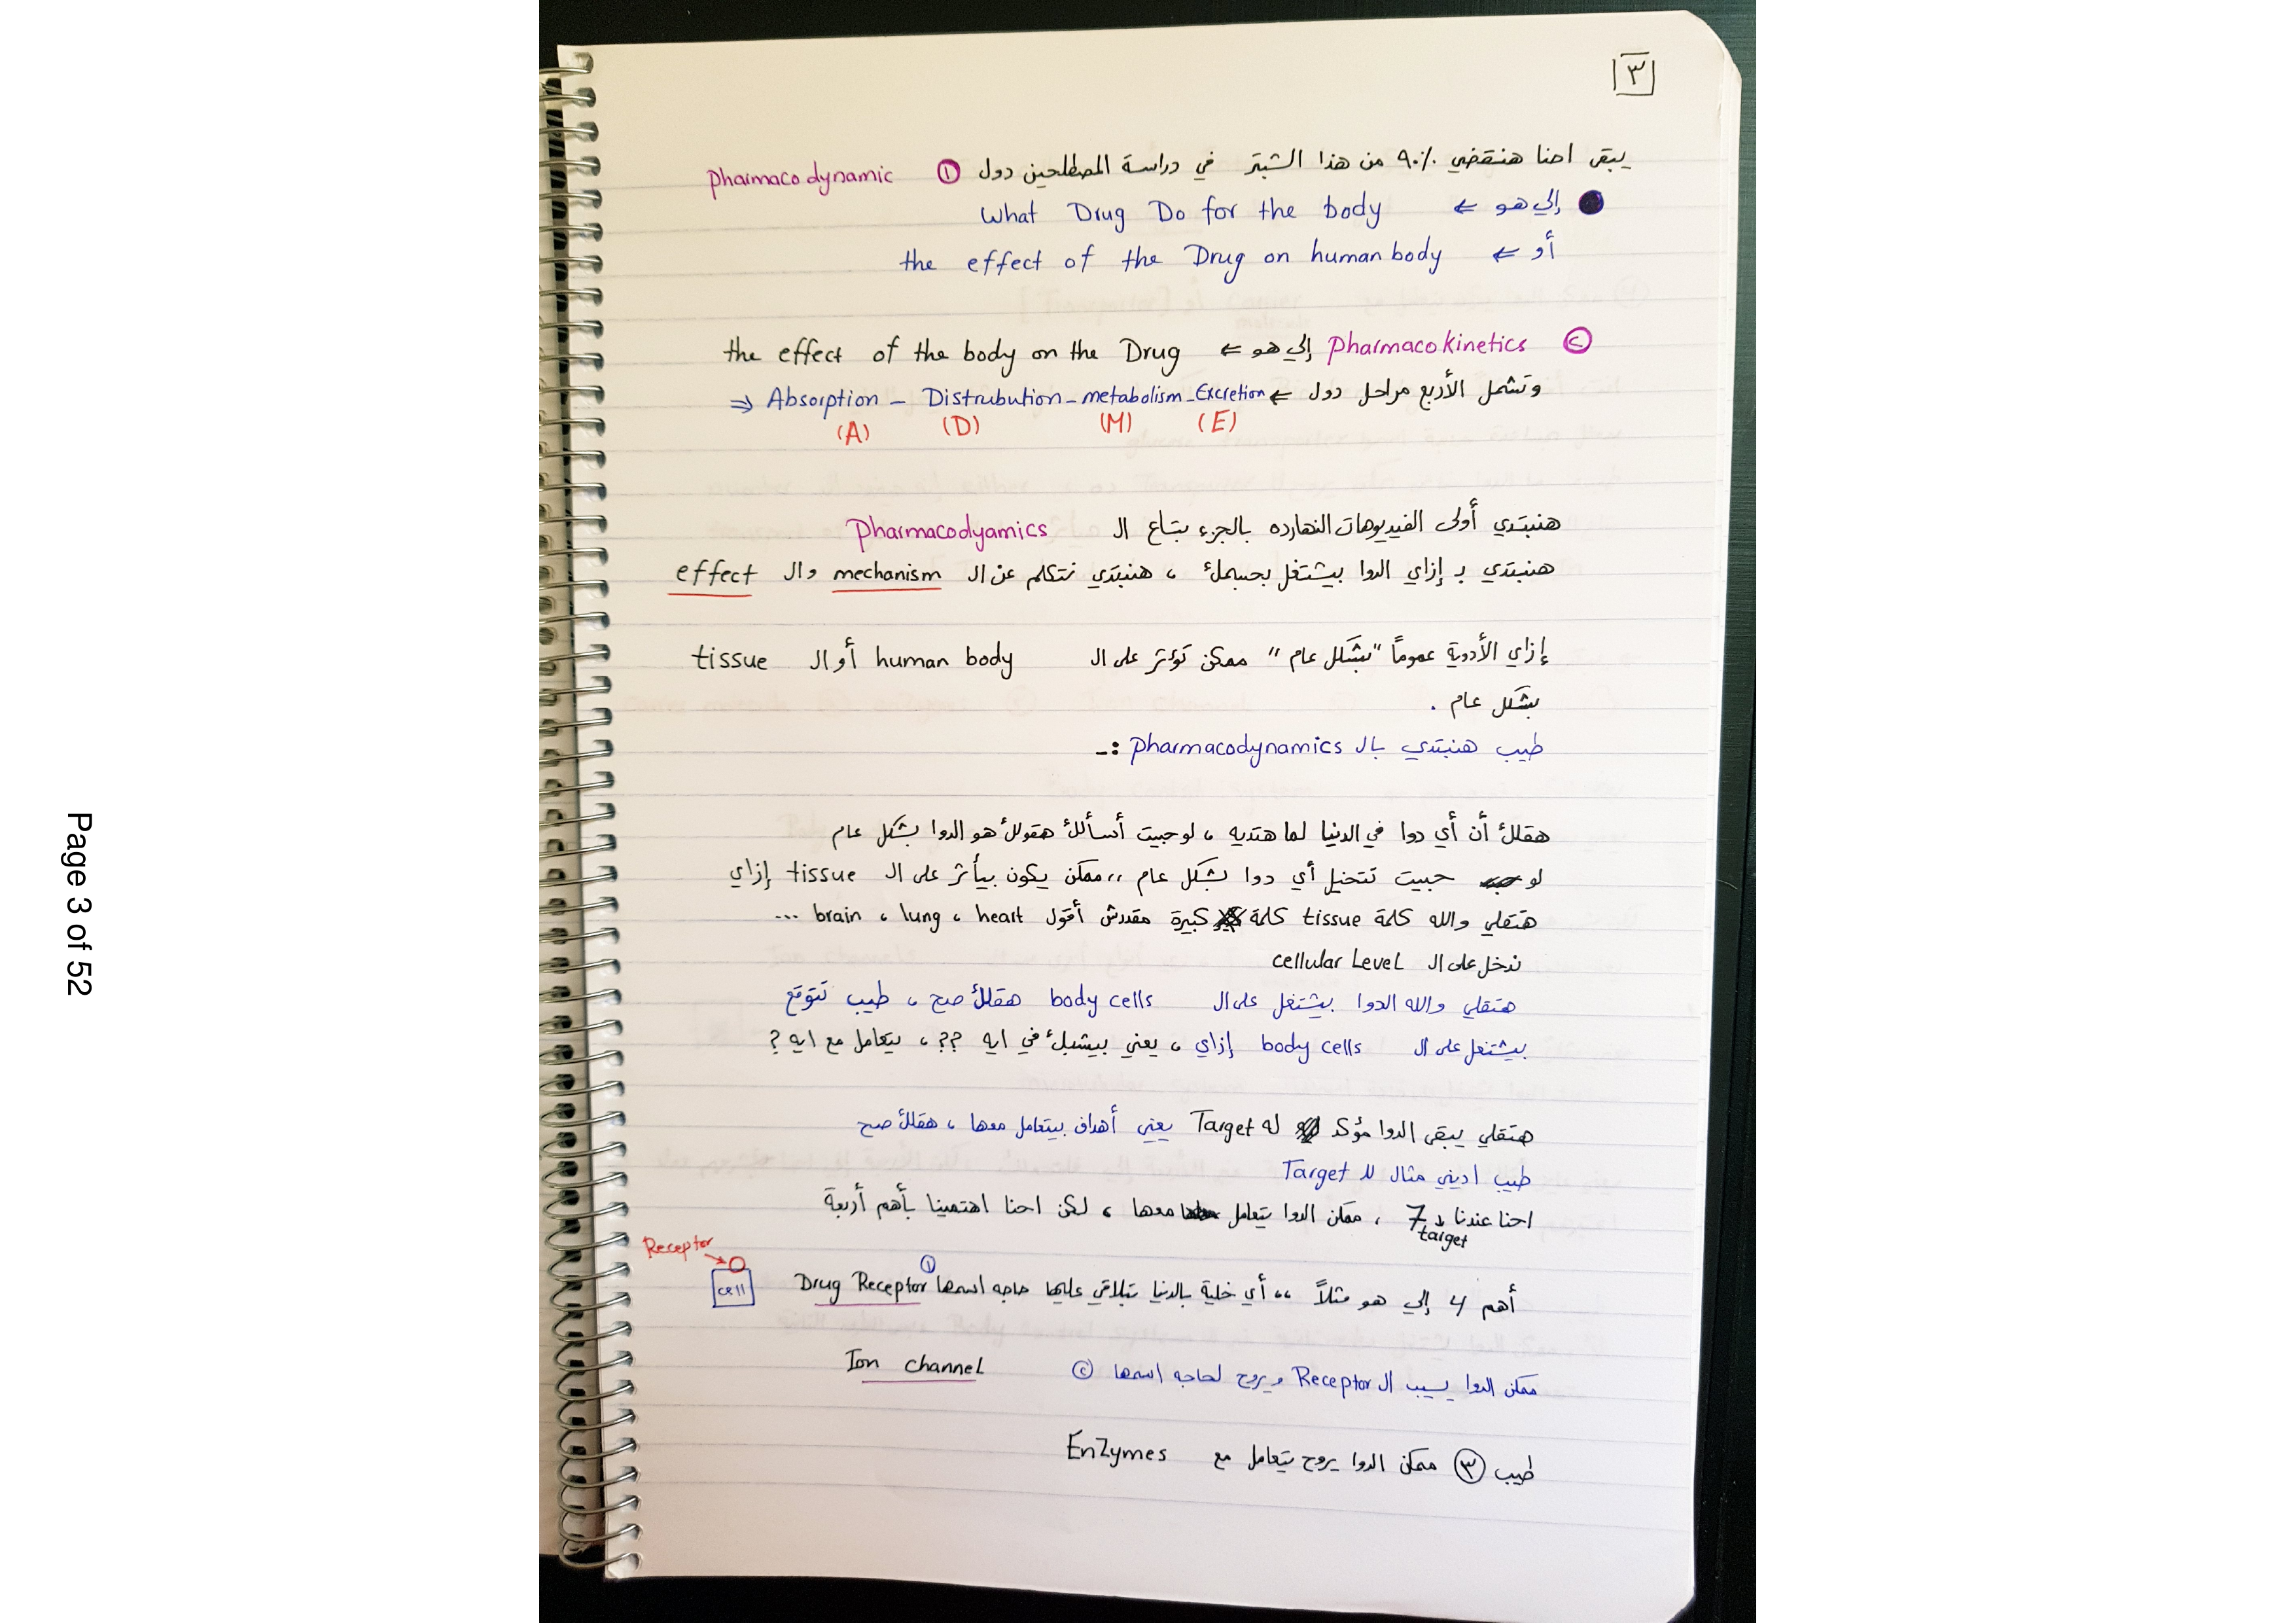 ٣
يبقى احنا هنقضي ٩٠٪ من هذا الشبتر في دراسة المصطلحين دول ① pharmacodynamic
إلي هو ⇐ What Drug Do for the body
أو ⇐ the effect of the Drug on human body
② pharmacokinetics إلي هو ⇐ the effect of the body on the Drug
وتشمل الأربع مراحل دول ⇐ Absorption - Distrubution - metabolism - Excretion ⇒
(A) (D) (M) (E)
هنبتدي أولى الفيديوهات النهارده بالجزء بتاع ال Pharmacodyamics
هنبتدي بـ إزاي الدوا بيشتغل بجسمك ، هنبتدي نتكلم عن ال mechanism وال effect
إزاي الأدوية عموماً "بشكل عام" ممكن تؤثر على ال human body أو ال tissue
بشكل عام .
طيب هنبتدي بال pharmacodynamics :-
هقلك أن أي دوا في الدنيا لما هتديه ، لو جيت أسألك هقولك هو الدوا بشكل عام
لو حبيت تتخيل أي دوا بشكل عام ،، ممكن يكون بيأثر على ال tissue إزاي
هتقلي والله كلمة tissue كلمة كبيرة مقدرش أقول heart ، lung ، brain ...
ندخل على ال cellular Level
هتقلي والله الدوا بيشتغل على ال body cells هقلك صح ، طيب تتوقع
بيشتغل على ال body cells إزاي ، يعني بيشبك في ايه ?? ، بيتعامل مع ايه ?
هتقلي يبقى الدوا مؤكد له Target يعني أهداف بيتعامل معها ، هقلك صح
طيب اديني مثال لل Target
احنا عندنا 7 target ، ممكن الدوا يتعامل معها ، لكن احنا اهتمينا بأهم أربعة
Receptor
cell
أهم 4 إلي هو مثلاً ،، أي خلية بالدنيا بتلاقي عليها حاجه اسمها ① Drug Receptor
ممكن الدوا يسيب ال Receptor ويروح لحاجه اسمها ② Ion channel
طيب ③ ممكن الدوا يروح يتعامل مع EnZymes
Page 3 of 52